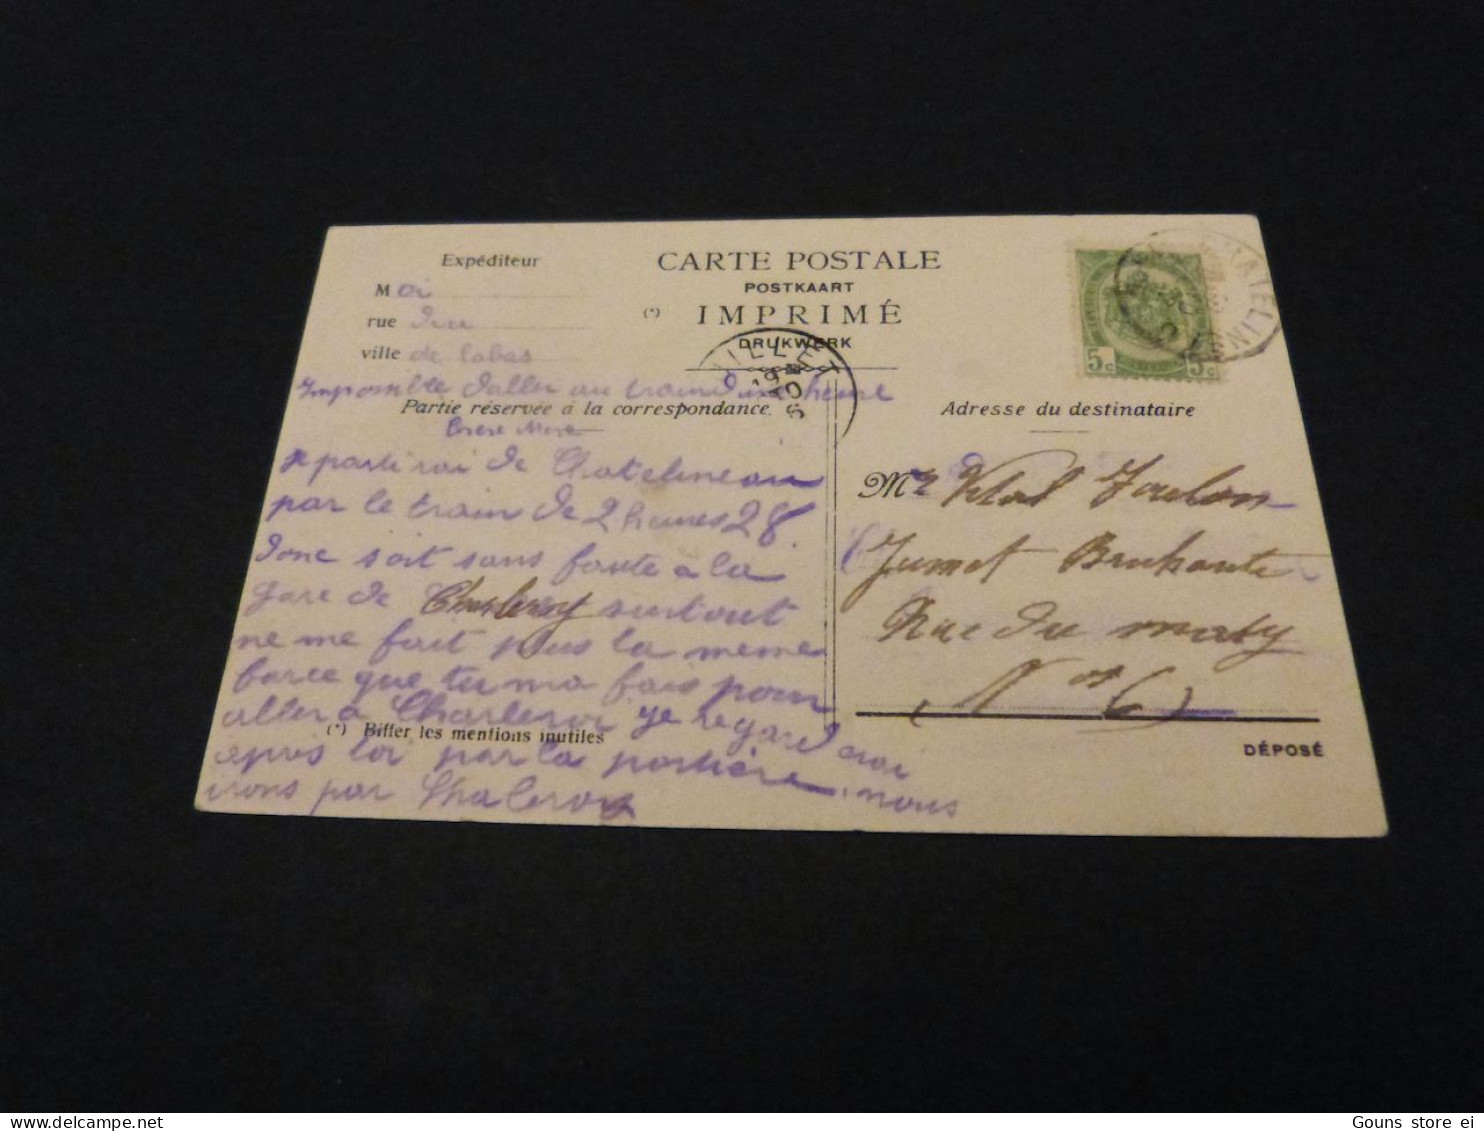 Expéditeur
CARTE POSTALE
POSTKAART
Moi
(*)
IMPRIMÉ
rue
DRUKWERK
ville de labas
JUILLET
5c 5c
Impossible daller au train d'une heure
Partie réservée à la correspondance
Adresse du destinataire
je partirai de Chatelineau
par le train de 2 heures 28.
donc soit sans faute a la
gare de Charleroy surtout
ne me fait plus la meme
farce que tu ma fais pour
aller a Charleroi je regarderai
(*) Biffer les mentions inutiles
apres toi par la portière. nous
irons par Chaleroi
Mr Vital Toulon
Jumet Bruhaute
Rue du
(Nos 6)
DÉPOSÉ
Gouns store ei